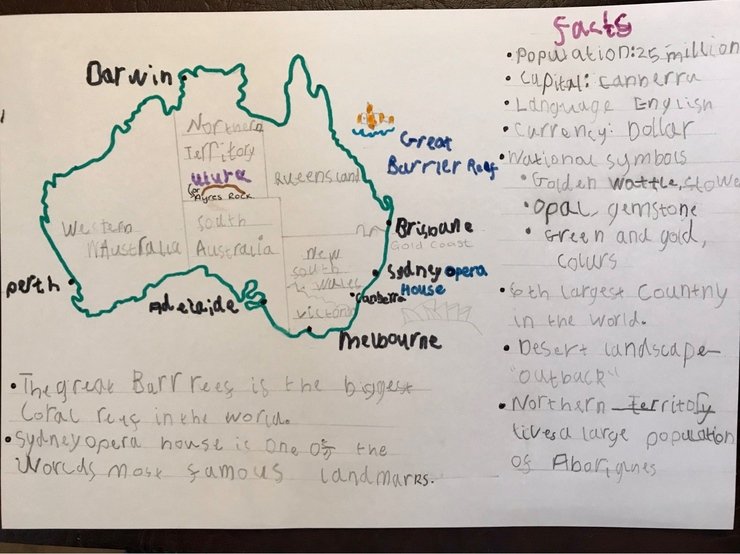 Facts
• Population: 25 million
• Capital: Canberra
• Language English
• Currency: Dollar
• National symbols
• Golden wattle, flowe
• opal, gemstone
• Green and gold,
colurs
• 6th largest Country
in the world.
• Desert landscape-
"outback"
• Northern Territoty
lives a large population
of Aborigines
Darwin
Northern
Territory
uluru
(or
Ayres Rock
Queensland
Great
Barrier Reef
Western
Australia
South
Australia
Brisbane
Gold Coast
New
South
Wales
Sydney opera
House
Canberra
Victoria
perth
Adelaide
Melbourne
• The great Barr reef is the biggest
Coral reef in the world.
• Sydney opera house is one of the
Worlds most famous landmarks.